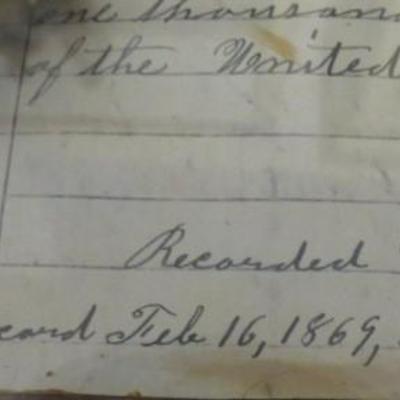 one thousand
of the United
Recorded
cord Feb 16, 1869,